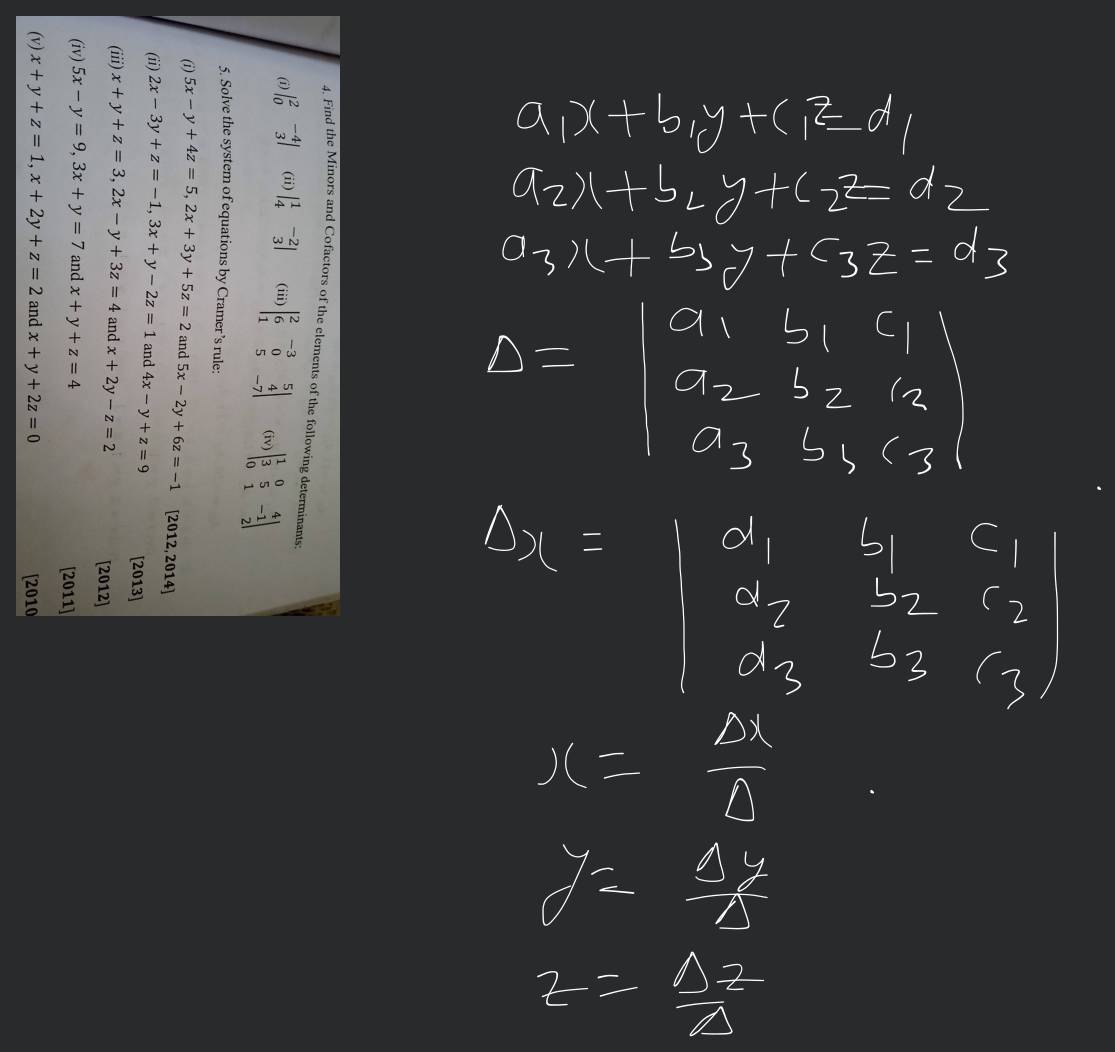 4. Find the Minors and Cofactors of the elements of the following determinants:
(i) |2 −4| (ii) |1 −2| (iii) |2 −3 5| (iv) |1 0 4|
|0 3| |4 3| |6 0 4| |3 5 −1|
|1 5 −7| |0 1 2|
5. Solve the system of equations by Cramer's rule:
(i) 5x − y + 4z = 5, 2x + 3y + 5z = 2 and 5x − 2y + 6z = −1 [2012, 2014]
(ii) 2x − 3y + z = −1, 3x + y − 2z = 1 and 4x − y + z = 9 [2013]
(iii) x + y + z = 3, 2x − y + 3z = 4 and x + 2y − z = 2 [2012]
(iv) 5x − y = 9, 3x + y = 7 and x + y + z = 4 [2011]
(v) x + y + z = 1, x + 2y + z = 2 and x + y + 2z = 0 [2010
a₁x + b₁y + c₁z = d₁
a₂x + b₂y + c₂z = d₂
a₃x + b₃y + c₃z = d₃
Δ = | a₁ b₁ c₁ |
| a₂ b₂ c₂ |
| a₃ b₃ c₃ |
Δx = | d₁ b₁ c₁ |
| d₂ b₂ c₂ |
| d₃ b₃ c₃ |
x = Δx/Δ
y = Δy/Δ
z = Δz/Δ